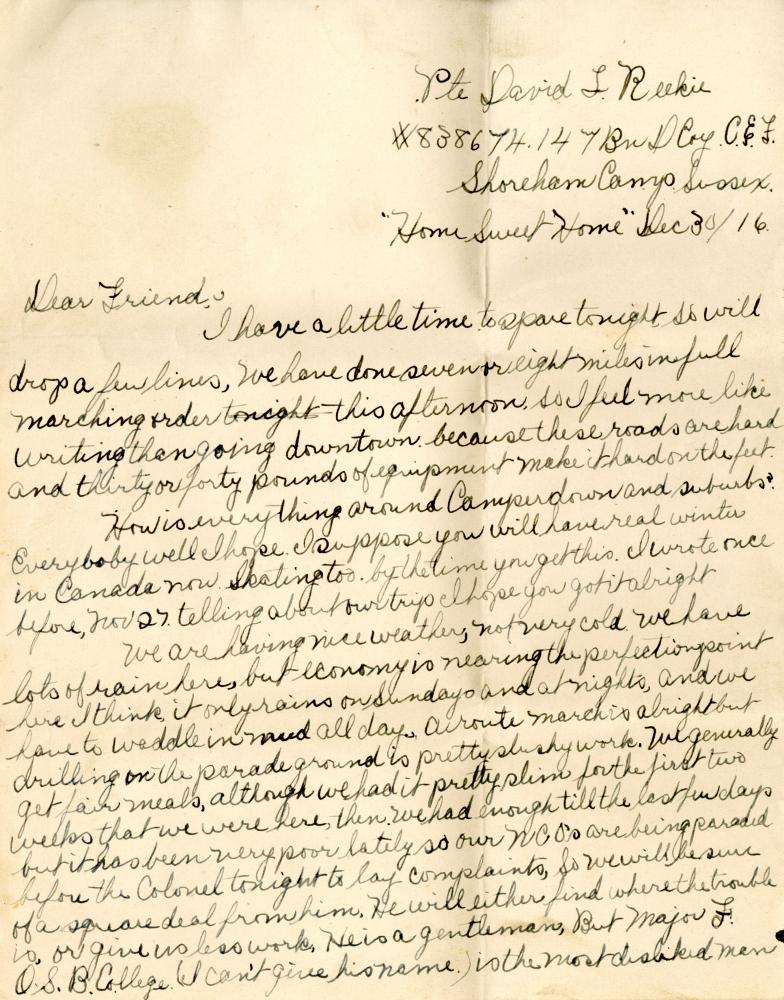 Pte David L. Reekie
#838674. 147 Bn D Coy. C.E.F.
Shoreham Camp. Sussex.
"Home Sweet Home" Dec 30/16.
Dear Friend,
I have a little time to spare tonight so will
drop a few lines, We have done seven or eight miles in full
marching order tonight this afternoon. so I feel more like
writing than going downtown. because these roads are hard
and thirty or forty pounds of equipment make it hard on the feet.
How is everything around Camperdown and suburbs?
Everybaby well I hope. I suppose you will have real winter
in Canada now. Skating too. by the time you get this. I wrote once
before, Nov 27. telling about our trip I hope you got it alright
We are having nice weather, not very cold. We have
lots of rain here, but economy is nearing the perfection point
here I think, it only rains on Sundays and at nights, and we
have to waddle in mud all day. A route march is alright but
drilling on the parade ground is pretty slushy work. We generally
get fair meals, although we had it pretty slim for the first two
weeks that we were here, then. we had enough till the last few days
but it has been very poor lately so our N.C.O's are being paraded
before the Colonel tonight to lay complaints, So we will be sure
of a square deal from him. He will either find where the trouble
is, or give us less work. He is a gentleman, But Major F.
O.S.B. College (I can't give his name.) is the most disliked man